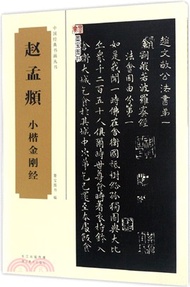 赵孟頫
小楷金刚经
趙文敏公法書第一
金剛般若波羅蜜經
法會因由分第一
如是我聞一時佛在舍衛國祇樹給孤獨園與大比
丘衆千二百五十人俱爾時世尊食時著衣持鉢入舍
衛大城乞食於其城中次第乞已還至本處飯食